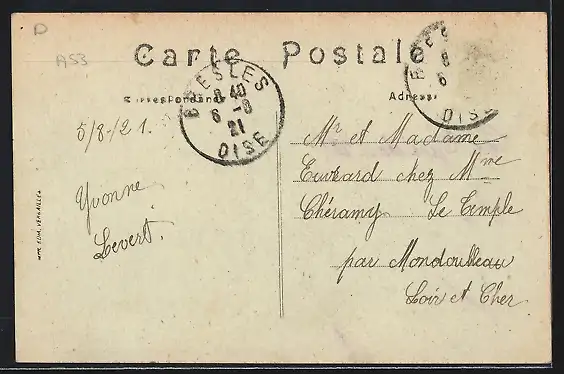 D
A53
Carte Postale
Correspondance
Adresse
BRESLES
8 40
6 -8
21
OISE
B
S
8
6
OISE
5/8-/21.
Yvonne
Levert.
Mr et Madame
Euvrard chez Mme
Chéramy Le Temple
par Mondoubleau
Loir et Cher
EDIA, VERSAILLES